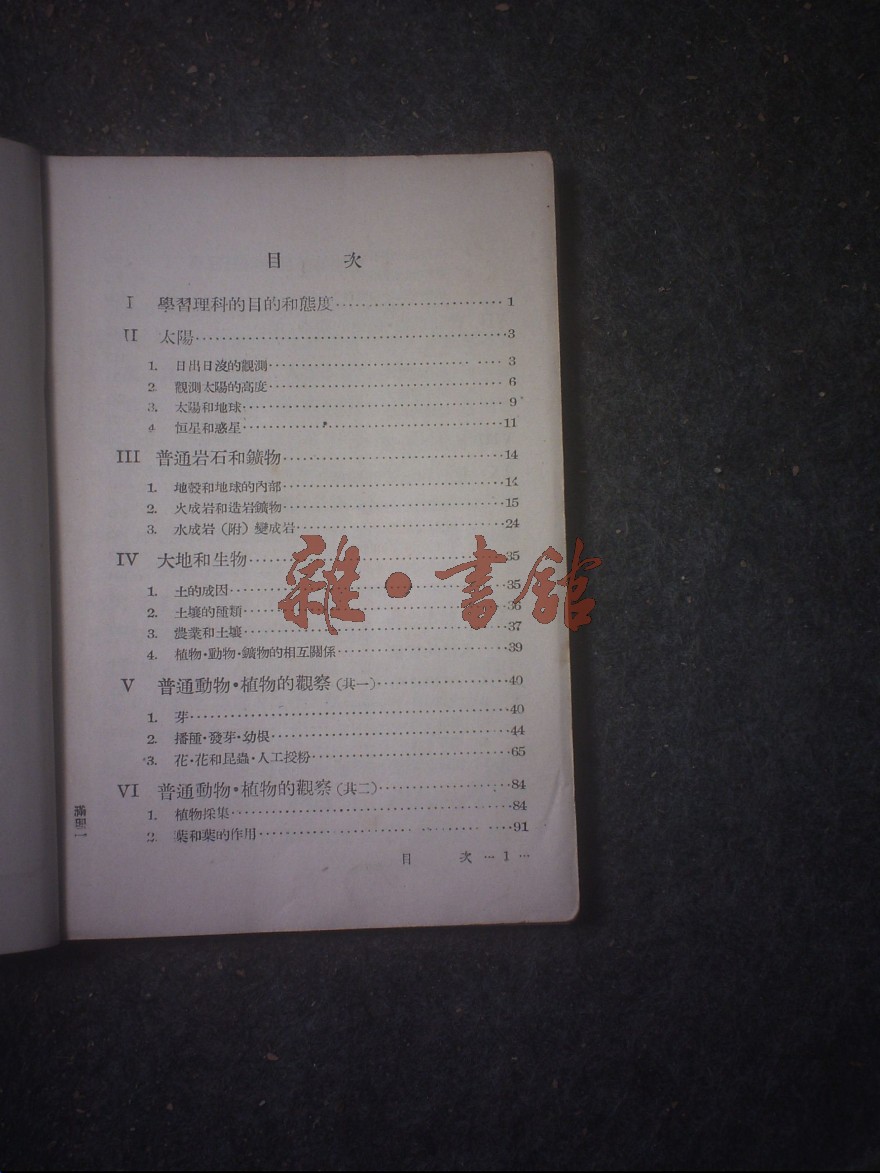 目 次
I 學習理科的目的和態度 1
II 太陽 3
1. 日出日沒的觀測 3
2. 觀測太陽的高度 6
3. 太陽和地球 9
4. 恒星和惑星 11
III 普通岩石和鑛物 14
1. 地殼和地球的內部 14
2. 火成岩和造岩鑛物 15
3. 水成岩（附）變成岩 24
IV 大地和生物 35
1. 土的成因 35
2. 土壤的種類 36
3. 農業和土壤 37
4. 植物·動物·鑛物的相互關係 39
V 普通動物·植物的觀察（其一） 40
1. 芽 40
2. 播種·發芽·幼根 44
3. 花·花和昆蟲·人工授粉 65
VI 普通動物·植物的觀察（其二） 84
1. 植物採集 84
2. 葉和葉的作用 91
目 次 … 1 …
滿理一
雜·書館